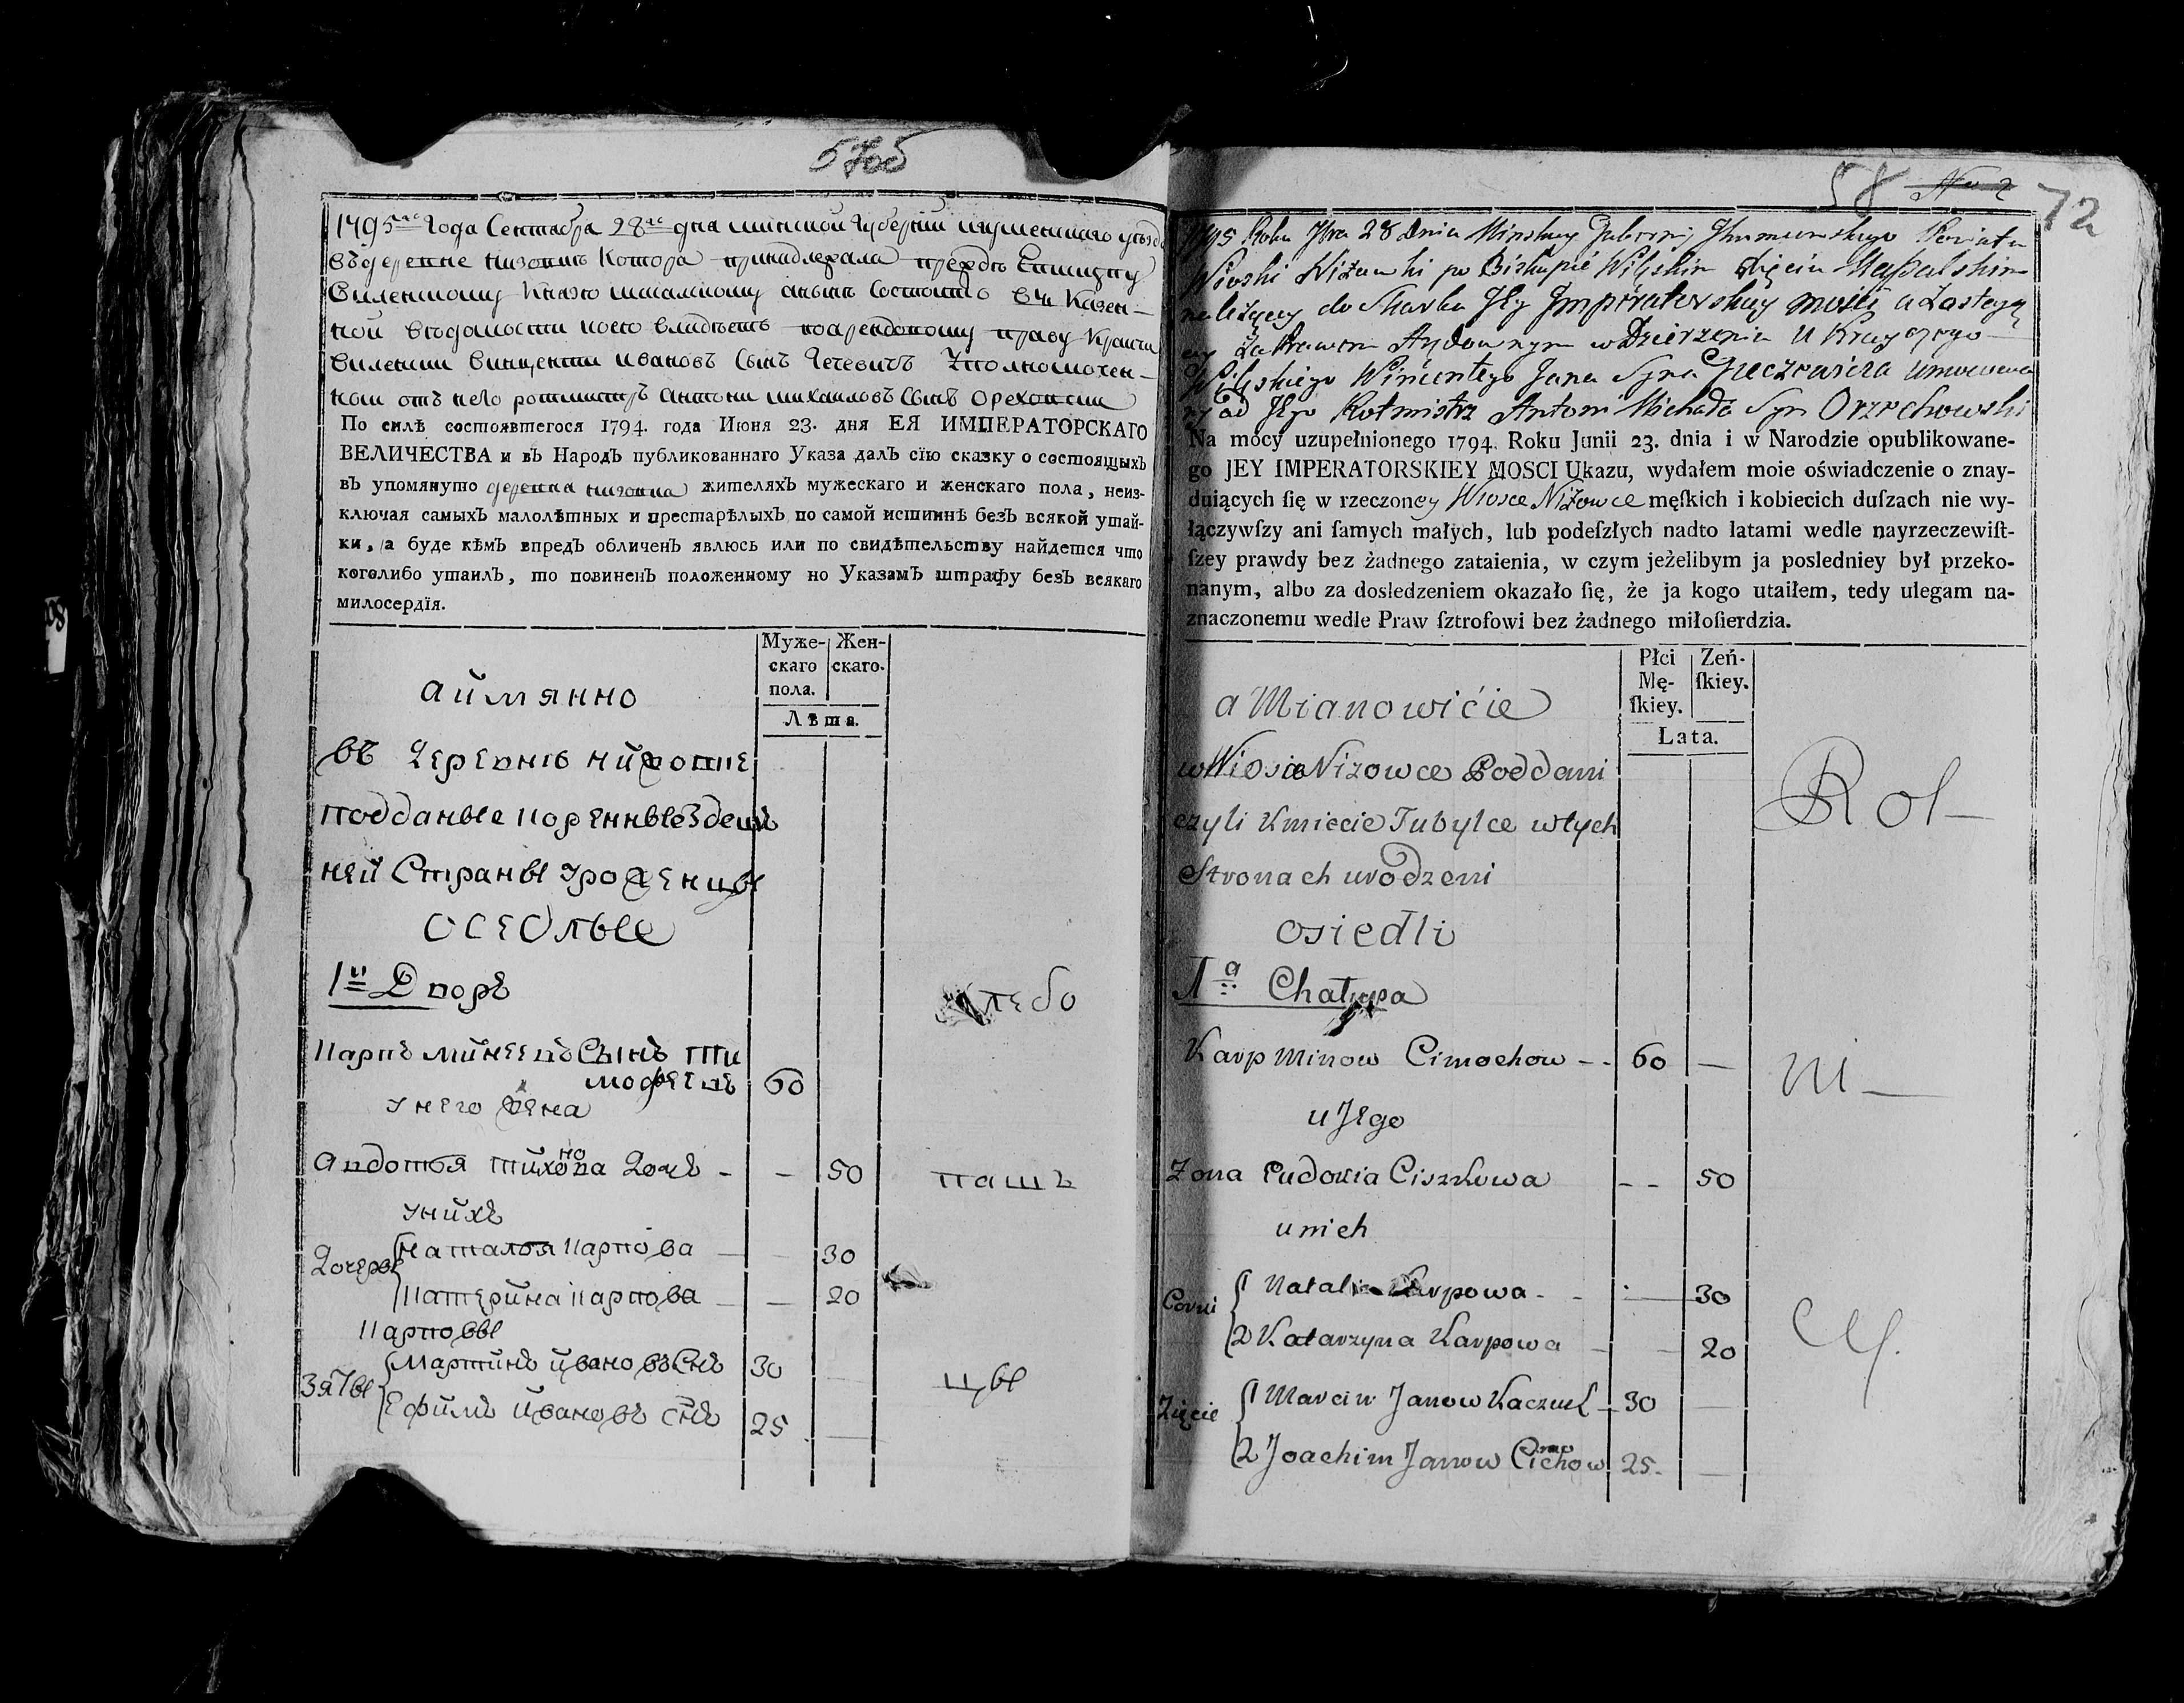 57об
1795го Года Сентября 28го дня минской губернии игуменского уезда
въ деревне низовкъ Котора принадлежала преждъ Епископу
виленскому Князю масалскому анынъ состоитъ въ Казен-
ной въдомости коею владъетъ поарендовному праву Крайчи
виленски винценти ивановъ Сынъ Гечевичъ Уполномочен-
ной отъ него ротмистръ антони михаиловъ Сынъ Ореховски
По силѣ состоявшегося 1794. года Июня 23. дня ЕЯ ИМПЕРАТОРСКАГО
ВЕЛИЧЕСТВА и въ Народъ публикованнаго Указа далъ сїю сказку о состоящыхъ
въ упомянуто деревна низовка жителяхъ мужескаго и женскаго пола, неиз-
ключая самыхъ малолѣтных и престарѣлыхъ по самой истиннѣ безъ всякой утай-
ки, а буде кѣмъ впредъ обличенъ явлюсь или по свидѣтельству найдется что
коголибо утаилъ, то повиненъ положенному но Указамъ штрафу безъ всякаго
милосердїя.
Муже- Жен-
скаго скаго.
пола.
Лѣта.
аймянно
въ деревнъ нйжовке
подданые коренные здеш
ней Страны уроженцы
оседлые
1й Дворъ
хлебо
Карпъ минеевъ Сынъ Ти
мофеевъ 60
унего жена
Авдотья тйхонова Дочъ - - 50
пашъ
унйхъ
Дочеры
Наталья карпова — — 30
Катерйна карпова — — 20
карповы
зяты
Мартйнъ йвановъ Снъ 30 —
цы
Ефймъ йвановъ снъ 25 —
58 No 2 72
1795 Roku 7bra 28 Dnia Minskiey Gubernij Ihumenskiego Powiatu
Wioski Niżowki po Biskupie Wileńskim Xięciu Massalskim
należący do Skarbu Jey Imperatorskiey mości a zostaią
cy za Prawem Arędownym w Dzierżeniu U Krayczego
Wileńskiego Wincentego Jana Syna Gieczewicza umocowa
ny od Jego Rotmistrz Antoni Michała Syn Orzechowski
Na mocy uzupełnionego 1794. Roku Junii 23. dnia i w Narodzie opublikowane-
go JEY IMPERATORSKIEY MOSCI Ukazu, wydałem moie oświadczenie o znay-
duiących ſię w rzeczoney Wiosce Niżowce męſkich i kobiecich duſzach nie wy-
łączywſzy ani ſamych małych, lub podeſzłych nadto latami wedle nayrzeczewiſt-
ſzey prawdy bez żadnego zataienia, w czym jeżelibym ja posledniey był przeko-
nanym, albo za dosledzeniem okazało ſię, że ja kogo utaiłem, tedy ulegam na-
znaczonemu wedle Praw ſztrofowi bez żadnego miłoſierdzia.
Płci Zeń-
Mę- ſkiey.
ſkiey.
Lata.
a Mianowićie
w Wiosce Nizowce Poddani
Rol—
czyli Kmiecie Tubylce wtych
Stronach urodzeni
osiedli
1a Chałupa
Karp Minow Cimochow -- 60 —
ni—
u Jego
Zona Eudokia Ciszkowa -- 50
u nich
Corki
1 Natalia Karpowa - - — 30
2 Katarzyna Karpowa — — 20
cy.
Zięcie
1 Marcin Janow Kaczuk — 30 —
2 Joachim Janow Cimochow 25. —